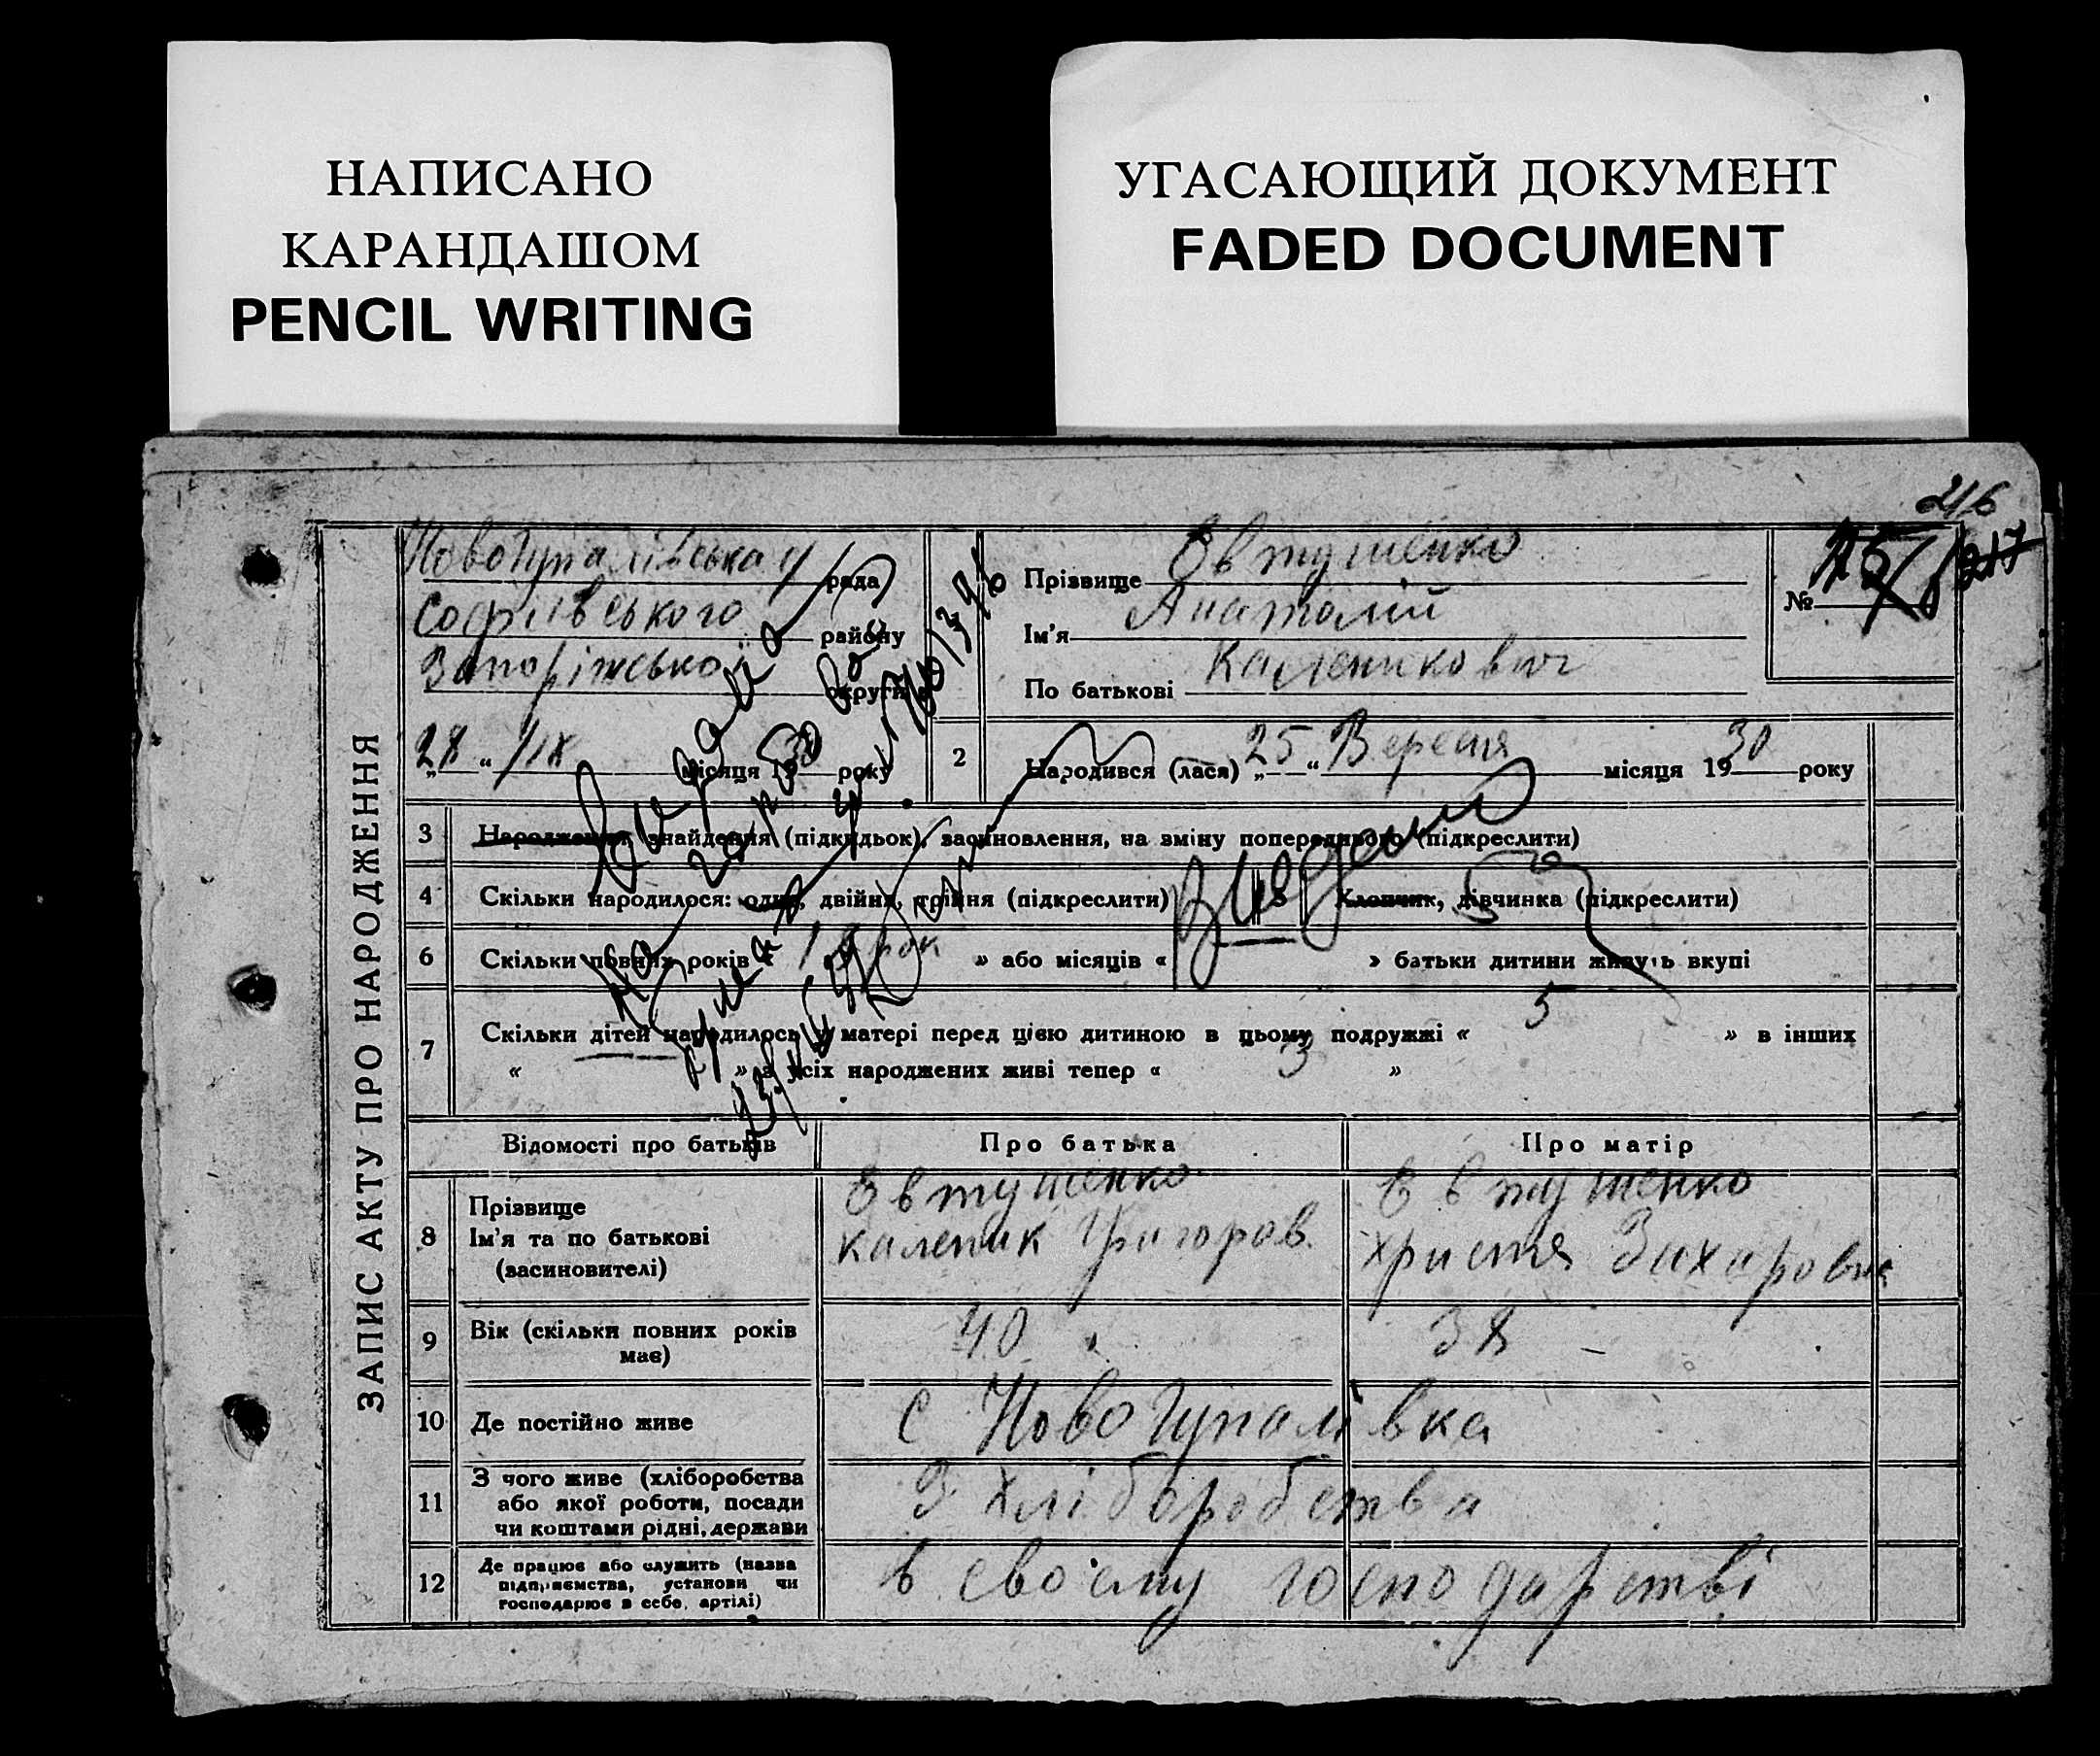 НАПИСАНО
КАРАНДАШОМ
PENCIL WRITING
УГАСАЮЩИЙ ДОКУМЕНТ
FADED DOCUMENT
216
217
ЗАПИС АКТУ ПРО НАРОДЖЕННЯ
Новогупалівська рада
Софіївського району
Запоріжської округи
„28“ IX місяця 1930 року
Прізвище Євтушенко
Ім'я Анатолій
По батькові Каленикович
№
2 Народився (лася) „25“ Вересня місяця 1930 року
3 Народження, знайдення (підкидьок), засиновлення, на зміну попереднього (підкреслити)
4 Скільки народилося: одна, двійня, трійня (підкреслити)
5 Хлопчик, дівчинка (підкреслити)
6 Скільки повних років « 18 рок » або місяців « » батьки дитини живуть вкупі
7 Скільки дітей народилось у матері перед цією дитиною в цьому подружжі « 5 » в інших
« — » з усіх народжених живі тепер « 3 »
Відомості про батьків Про батька Про матір
8 Прізвище Євтушенко Євтушенко
Ім'я та по батькові Каленик Григоров. Христя Захаровна
(засиновителі)
9 Вік (скільки повних років має) 40 38
10 Де постійно живе с Новогупалівка
11 З чого живе (хліборобства
або якої роботи, посади
чи коштами рідні, держави
З хліборобства
12 Де працює або служить (назва
підприємства, установи чи
господарює в себе, артілі)
в своєму господарстві